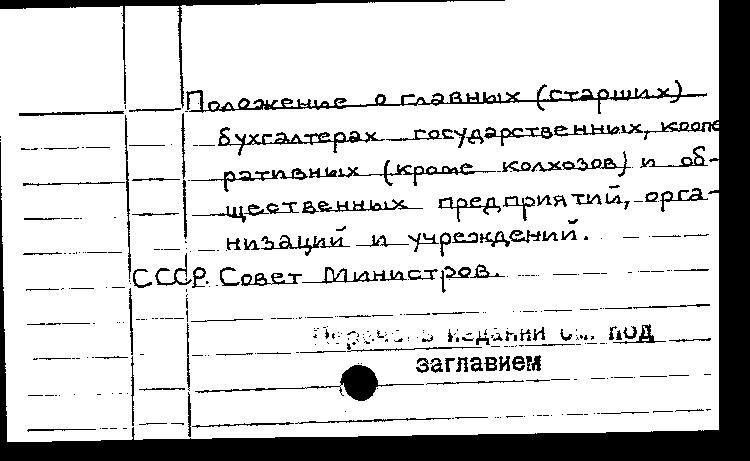 Положение о главных (старших)
бухгалтерах государственных, коопе
ративных (кроме колхозов) и об-
щественных предприятий, орга-
низаций и учреждений.
СССР. Совет Министров.
Перечень изданий см. под
заглавием